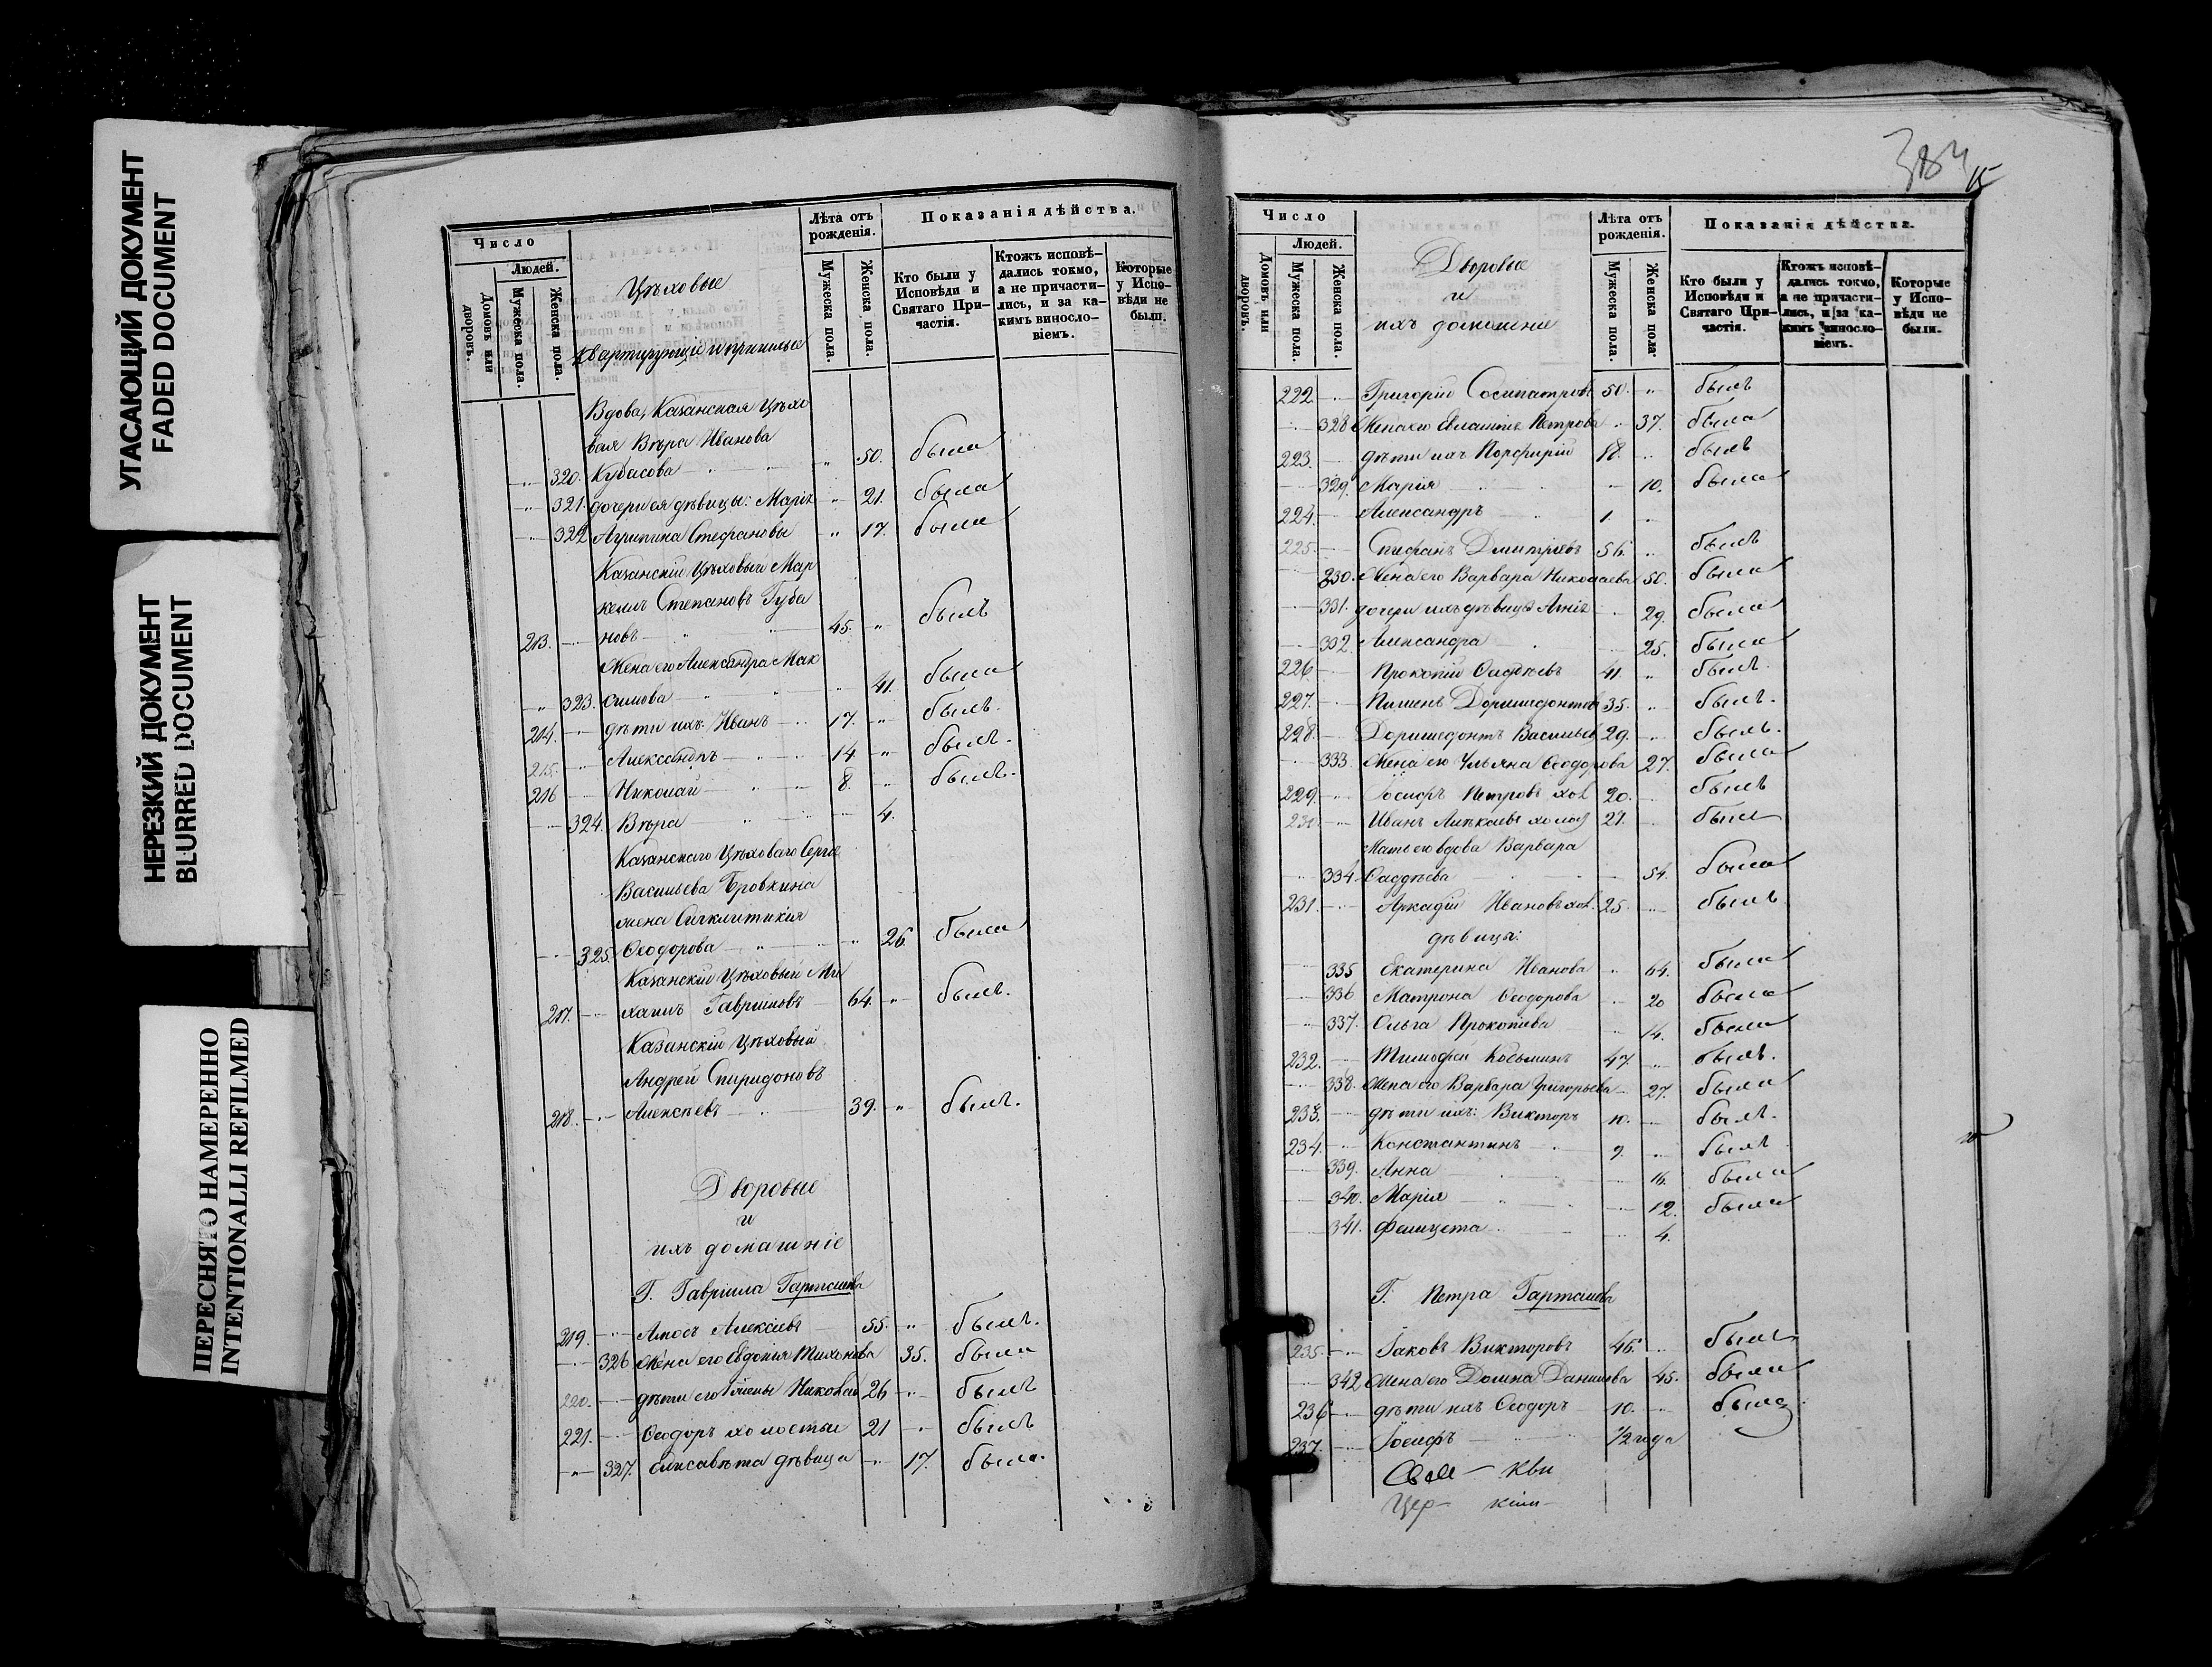 УГАСАЮЩИЙ ДОКУМЕНТ
FADED DOCUMENT
НЕРЕЗКИЙ ДОКУМЕНТ
BLURRED DOCUMENT
ПЕРЕСНЯТО НАМЕРЕННО
INTENTIONALLI REFILMED
Число
Людей.
Домовъ или дворовъ.
Мужеска пола.
Женска пола.
Цѣховые
квартирующіе и пришлые
Лѣта отъ рожденія.
Мужеска пола.
Женска пола.
Показанія дѣйства.
Кто были у Исповѣди и Святаго Причастія.
Ктожъ исповѣдались токмо, а не причастились, и за какимъ винословіемъ.
Которые у Исповѣди не были.
Вдова, Казанская Цѣхо
вая Вѣра Иванова
320. Кубасова 50. была
321. дочери ея дѣвицы: Марія 21. была
322 Агрипина Стефановы 17. была
Казанскій Цѣховый Мар
келъ Степановъ Губа
213. новъ 45. былъ
Жена его Александра Мак
323. симова 41. была
214. дѣти ихъ: Иванъ 17. былъ.
215. Александръ 14. былъ.
216 Николай 8. былъ.
324. Вѣра 4.
Казанскаго Цѣховаго Сергѣя
Васильева Бровкина
жена Сигклитикія
325. Ѳеодорова 26. была
Казанскій Цѣховый Ми
217. хаилъ Гавриловъ 64. былъ.
Казанскій Цѣховый
Андрей Спиридоновъ
218. Алексѣевъ 39. былъ.
Дворовые
и
ихъ домашніе
Г. Гавріила
219. Амосъ Алексѣевъ 55. былъ.
326 Жена его Евдокія Тихонова 35. была
220. дѣти его Николай 26 былъ
221. Ѳеодоръ холостые 21 былъ
327. Елисавѣта дѣвица 17. была.
15
Число
Людей.
Домовъ или дворовъ.
Мужеска пола.
Женска пола.
Дворовые
и
ихъ домашніе
Лѣта отъ рожденія.
Мужеска пола.
Женска пола.
Показанія дѣйства.
Кто были у Исповѣди и Святаго Причастія.
Ктожъ исповѣдались токмо, а не причастились, и за какимъ винословіемъ.
Которые у Исповѣди не были.
222 Григорій Сосипатровъ 50. былъ
328 Жена его Петрова 37. была
223. дѣти ихъ Порфирій 18. былъ
329. Марія 10. была
224. Александръ 1.
225. Стефанъ Димитріевъ 56. былъ
230. Жена его Варвара Николаева 50. была
331. дочери ихъ дѣвицы Агнія 29. была
332. Александра 25. была
226 Прокопій Ѳаддѣевъ 41. былъ.
227. Пименъ Доримедонтовъ 35. былъ.
228. Доримедонтъ Васильев 29. былъ.
333. Жена его Ульяна Ѳеодорова 27. была
229. Іосифъ Петровъ хол 20. былъ
230. Иванъ Алексѣевъ холос 27. былъ
Мать его вдова Варвара
334. Ѳаддѣева 54. была
231. Аркадій Ивановъ хол. 25. былъ
дѣвицы:
335 Екатерина Иванова 64. была
336 Матрона Ѳеодорова 20 была
337. Ольга Прокопіева 14. была
232. Тимофей Косьминъ 47. былъ.
338. Жена его Варвара Григорьева 27. была
233. дѣти ихъ: Викторъ 10. былъ.
234. Константинъ 9. былъ
339. Анна 16. была
340. Марія 12. была
341. Фелицета 4.
Г. Петра
235. Іаковъ Викторовъ 46. былъ
342 Жена его Домна Данилова 45. была
236 дѣти ихъ Ѳеодоръ 10. былъ
237. Іосифъ 1/2 года
Цер-